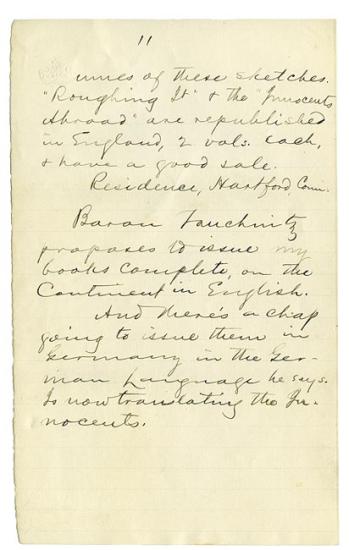 11
umes of these sketches.
"Roughing It" & the "Innocents
Abroad" are republished
in England, 2 vols. each,
& have a good sale.
Residence, Hartford, Conn.
Baron Tauchnitz
proposes to issue my
books complete, on the
Continent in English.
And there's a chap
going to issue them in
Germany in the Ger-
man language he says.
Is now translating the In-
nocents.